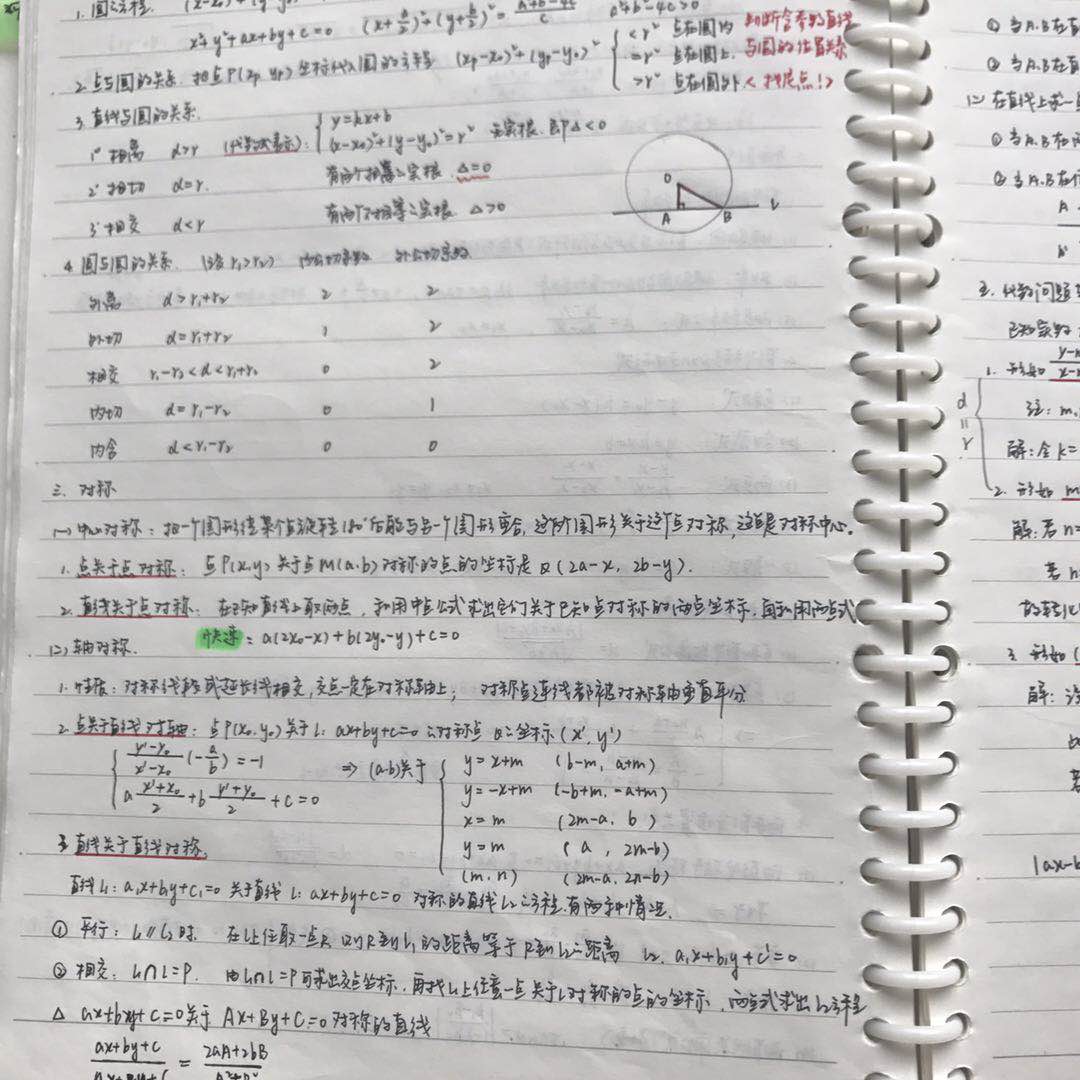 1. 圆的方程.
x²+y²+ax+by+c=0 (x+a/2)²+(y+b/2)²= a²+b²-4c>0
2. 点与圆的关系. 把点P(xp, yp)坐标代入圆的方程 (xp-x₀)²+(yp-y₀)²
<r² 点在圆内
=r² 点在圆上
>r² 点在圆外
判断含参的直线
与圆的位置关系
<找定点!>
3. 直线与圆的关系.
1° 相离 d>r (代数式表示): y=kx+b
(x-x₀)²+(y-y₀)²=r² 无实根. 即Δ<0
2° 相切 d=r. 有两个相等之实根. Δ=0
3° 相交 d<r 有两个不相等之实根. Δ>0
O
A B l
4. 圆与圆的关系. (设r₁>r₂) 内公切条数 外公切条数
外离 d>r₁+r₂ 2 2
外切 d=r₁+r₂ 1 2
相交 r₁-r₂<d<r₁+r₂ 0 2
内切 d=r₁-r₂ 0 1
内含 d<r₁-r₂ 0 0
三. 对称
(一)中心对称: 把一个图形绕某个点旋转180°后能与另一个图形重合, 这两个图形关于这个点对称, 这点是对称中心.
1. 点关于点对称: 点P(x,y)关于点M(a,b)对称的点的坐标是Q(2a-x, 2b-y).
2. 直线关于点对称: 在已知直线上取两点, 利用中点公式求出它们关于已知点对称的两点坐标, 再利用两点式
快速: a(2x₀-x)+b(2y₀-y)+c=0
(二) 轴对称.
1. 性质: 对称线段或延长线相交, 交点一定在对称轴上; 对称点连线都被对称轴垂直平分
2. 点关于直线对称: 点P(x₀,y₀)关于l: ax+by+c=0之对称点Q之坐标(x', y')
(y'-y₀)/(x'-x₀)·(-a/b)=-1
a(x'+x₀)/2+b(y'+y₀)/2+c=0
⇒ (a,b)关于
y=x+m (b-m, a+m)
y=-x+m (-b+m, -a+m)
x=m (2m-a, b)
y=m (a, 2m-b)
(m,n) (2m-a, 2n-b)
3. 直线关于直线对称.
直线l₁: a₁x+b₁y+c₁=0 关于直线l: ax+by+c=0 对称的直线l₂之方程. 有两种情况.
① 平行: l₁∥l₂时. 在l上任取一点R, 则R到l₁的距离等于R到l₂之距离 l₂. a₁x+b₁y+c'=0
② 相交: l₁∩l=P. 由l₁∩l=P可求出交点坐标, 再找l₁上任意一点关于l对称的点的坐标, 两点式求出l₂方程
Δ ax+by+c=0关于Ax+By+C=0对称的直线
(ax+by+c)/(Ax+By+C)=(2aA+2bB)/(A²+B²)
① 当A.B在直
② 当A.B在直
(二) 在直线上求一
① 当A.B在
② 当A.B在
A
1. 形如
d=r
注: m.
解: 令k=
2. 形如 m
解: 若n=
若n
3. 形如(
解: 设
|ax-b